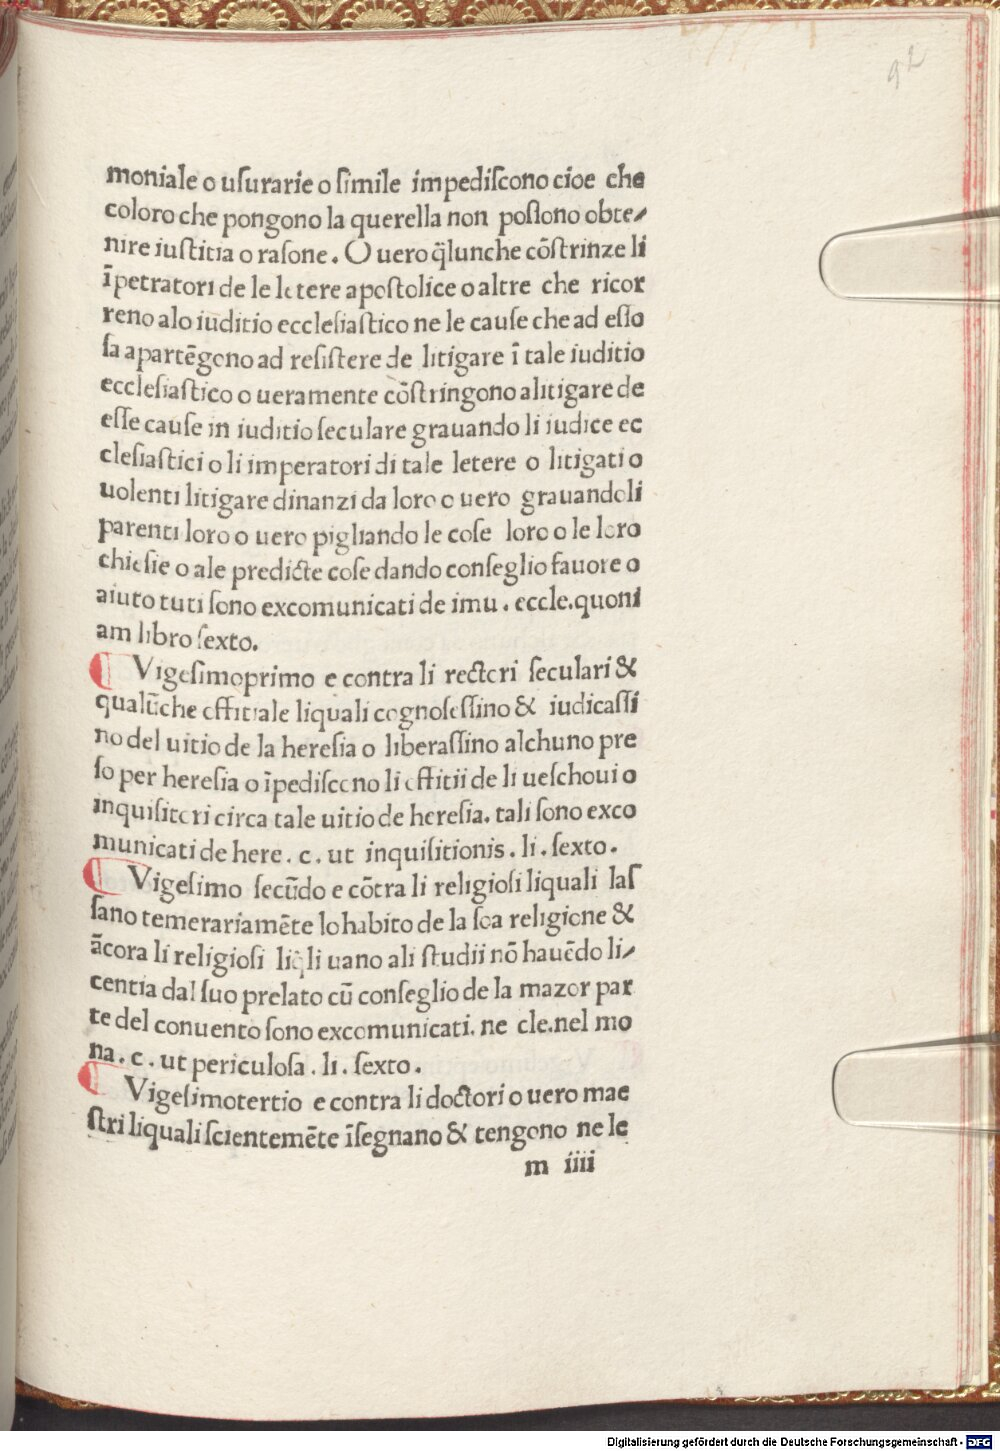 92
moniale o uſurarie o ſimile impediſcono cioe che
coloro che pongono la querella non poſſono obte⸗
nire iuſtitia o raſone. O uero q̄lunche cōſtrinze li
īpetratori de le letere apoſtolice o altre che ricor
reno alo iuditio eccleſiaſtico ne le cauſe che ad eſſo
ſa apartēgono ad reſiſtere de litigare ī tale iuditio
eccleſiaſtico o ueramente cōſtringono alitigare de
eſſe cauſe in iuditio ſeculare grauando li iudice ec
cleſiaſtici o li imperatori di tale letere o litigatio
uolenti litigare dinanzi da loro o uero grauandoli
parenti loro o uero pigliando le coſe loro o le loro
chieſie o ale predicte coſe dando conſeglio fauore o
aiuto tuti ſono excomunicati de imu. eccle.quoni
am libro ſexto.
Vigeſimoprimo e contra li rectori ſeculari &
qualūche offitiale liquali cognoſeſſino & iudicaſſi
no del uitio de la hereſia o liberaſſino alchuno pre
ſo per hereſia o īpediſcono li offitii de li ueſchoui o
inquiſitori circa tale uitio de hereſia. tali ſono exco
municati de here. c. ut inquiſitionis. li. ſexto.
Vigeſimo ſecūdo e cōtra li religioſi liquali laſ
ſano temerariamēte lo habito de la ſoa religione &
ācora li religioſi liq̄li uano ali ſtudii nō hauēdo li⸗
centia dal ſuo prelato cū conſeglio de la mazor par
te del conuento ſono excomunicati. ne cle.nel mo
na. c. ut periculoſa. li. ſexto.
Vigeſimotertio e contra li doctori o uero mae
ſtri liquali ſcientemēte īſegnano & tengono ne le
m iiii
Digitalisierung gefördert durch die Deutsche Forschungsgemeinschaft - DFG